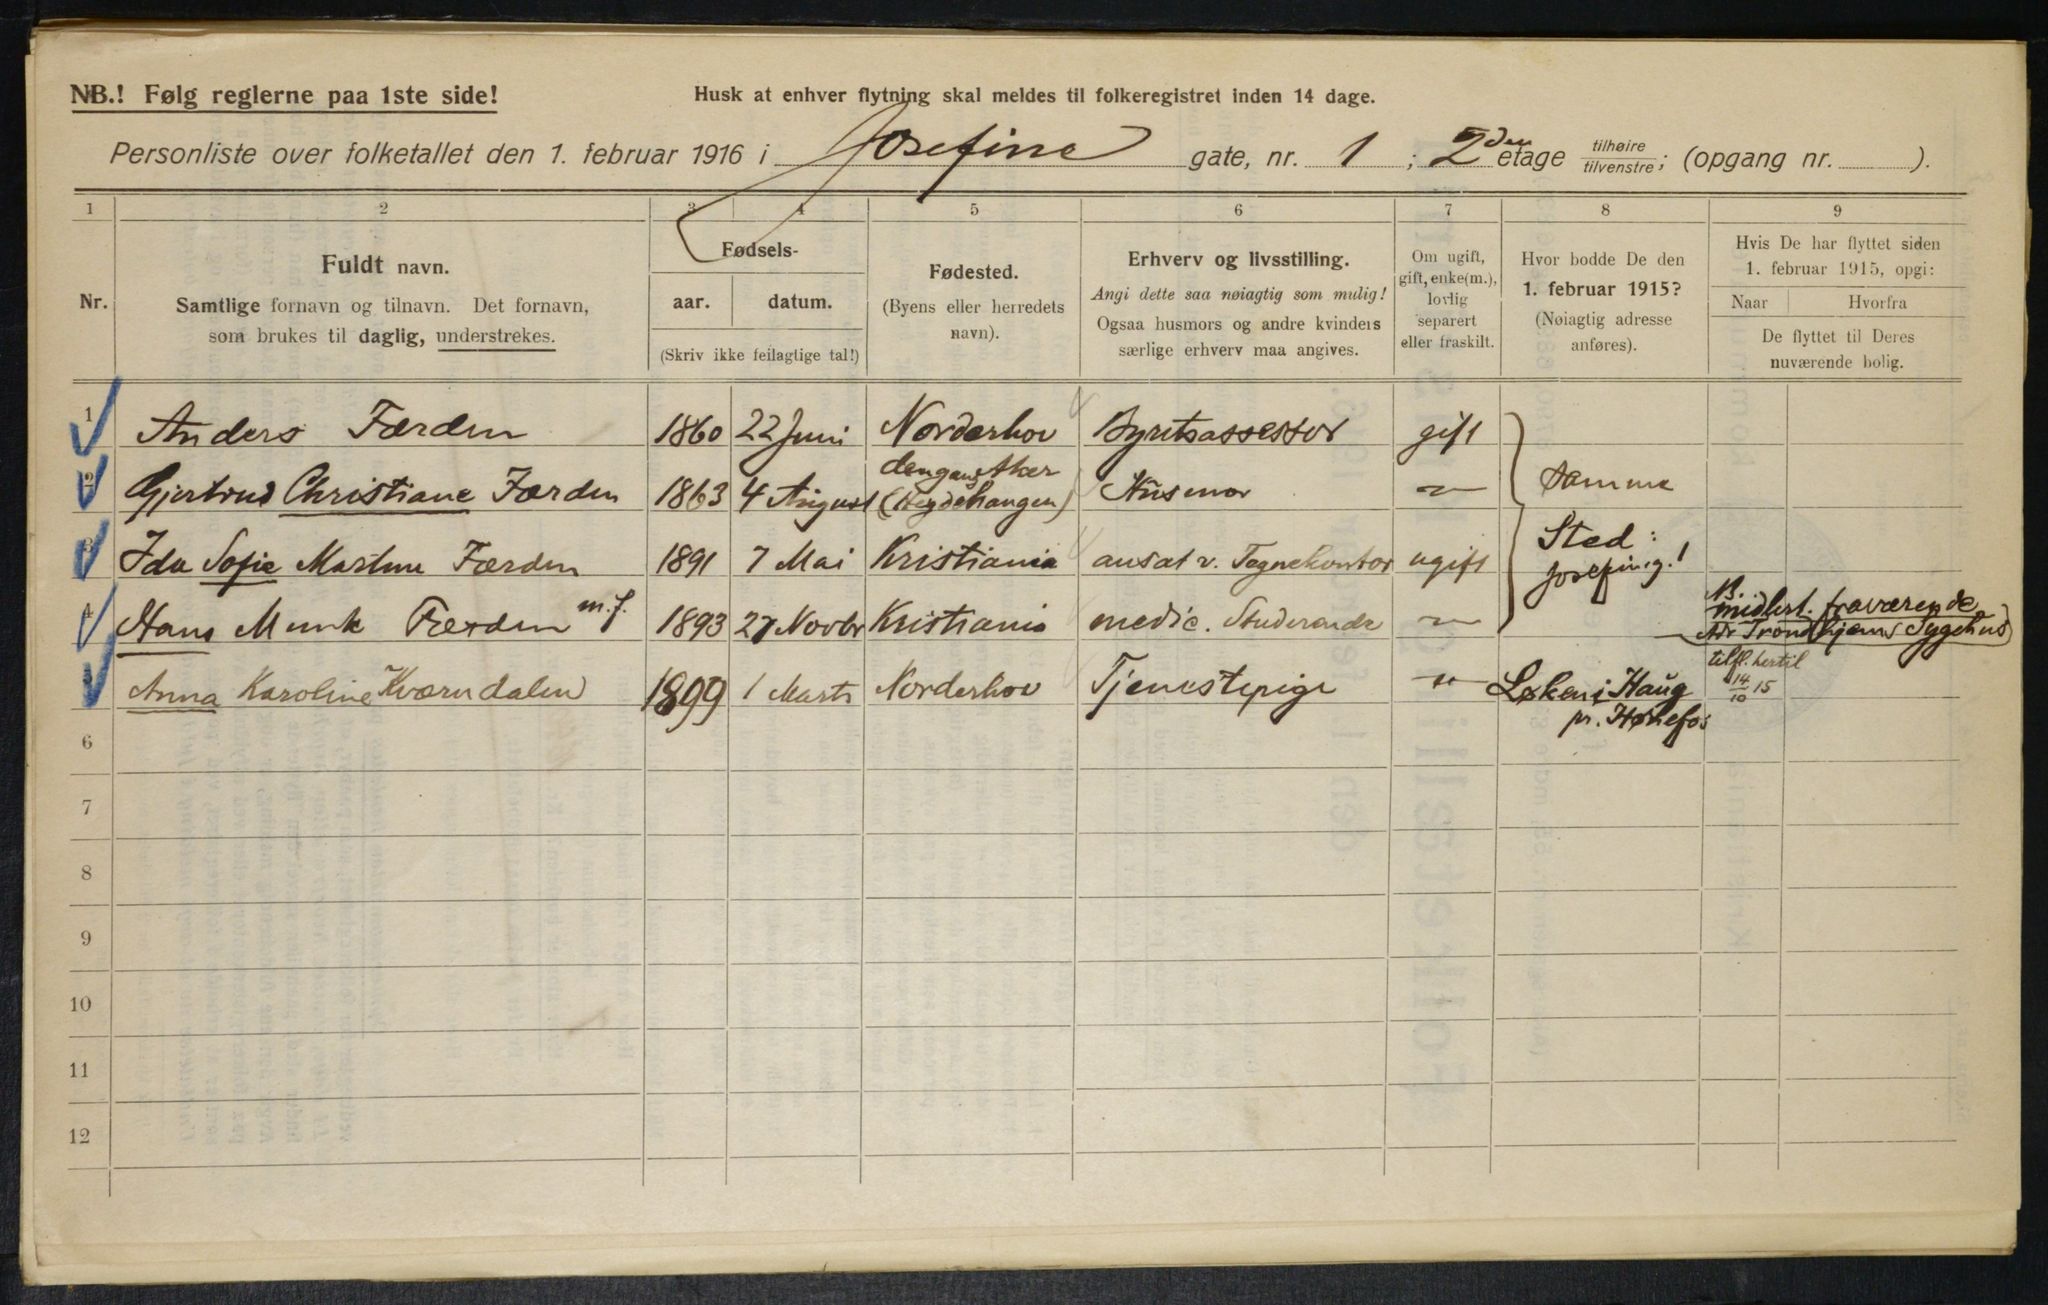 NB.! Følg reglerne paa 1ste side!
Husk at enhver flytning skal meldes til folkeregistret inden 14 dage.
Personliste over folketallet den 1. februar 1916 i Josefine gate, nr. 1 ; 2den etage tilhøire/tilvenstre; (opgang nr. ).
1 2 3 4 5 6 7 8 9
Nr.
Fuldt navn.
Samtlige fornavn og tilnavn. Det fornavn,
som brukes til daglig, understrekes.
Fødsels-
aar. datum.
(Skriv ikke feilagtige tal!)
Fødested.
(Byens eller herredets
navn).
Erhverv og livsstilling.
Angi dette saa nøiagtig som mulig!
Ogsaa husmors og andre kvinders
særlige erhverv maa angives.
Om ugift,
gift, enke(m.),
lovlig
separert
eller fraskilt.
Hvor bodde De den
1. februar 1915?
(Nøiagtig adresse
anføres).
Hvis De har flyttet siden
1. februar 1915, opgi:
Naar Hvorfra
De flyttet til Deres
nuværende bolig.
1 Anders Færden 1860 22 Juni Norderhov Byretsassessor gift
2 Gjertrud Christiane Færden 1863 4 August dengang Aker (Hegdehaugen) Husmor — Samme
3 Ida Sofie Færden 1891 7 Mai Kristiania ansat v. Tegnekontor ugift Sted: Josefing. 1
4 Hans Munk Færden m.f. 1893 27 Novbr Kristiania medic. Studerende — NB. midlert. fraværende
Adr Trondhjems Sygehus
5 Anna Karoline Kværndalen 1899 1 Marts Norderhov Tjenestepige — " — Løken i Haug tilfl. hertil 14/10 15
pr. Hønefos
6
7
8
9
10
11
12